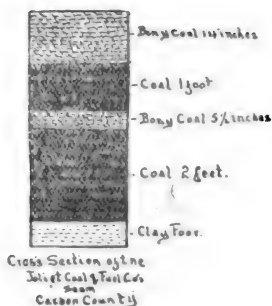 Bony Coal inches
Coal 1 foot
Bony Coal 5½ inches
Coal 2 feet.
Clay Floor.
Cross Section of the
Joliet Coal & Fuel Co's
Seam
Carbon County